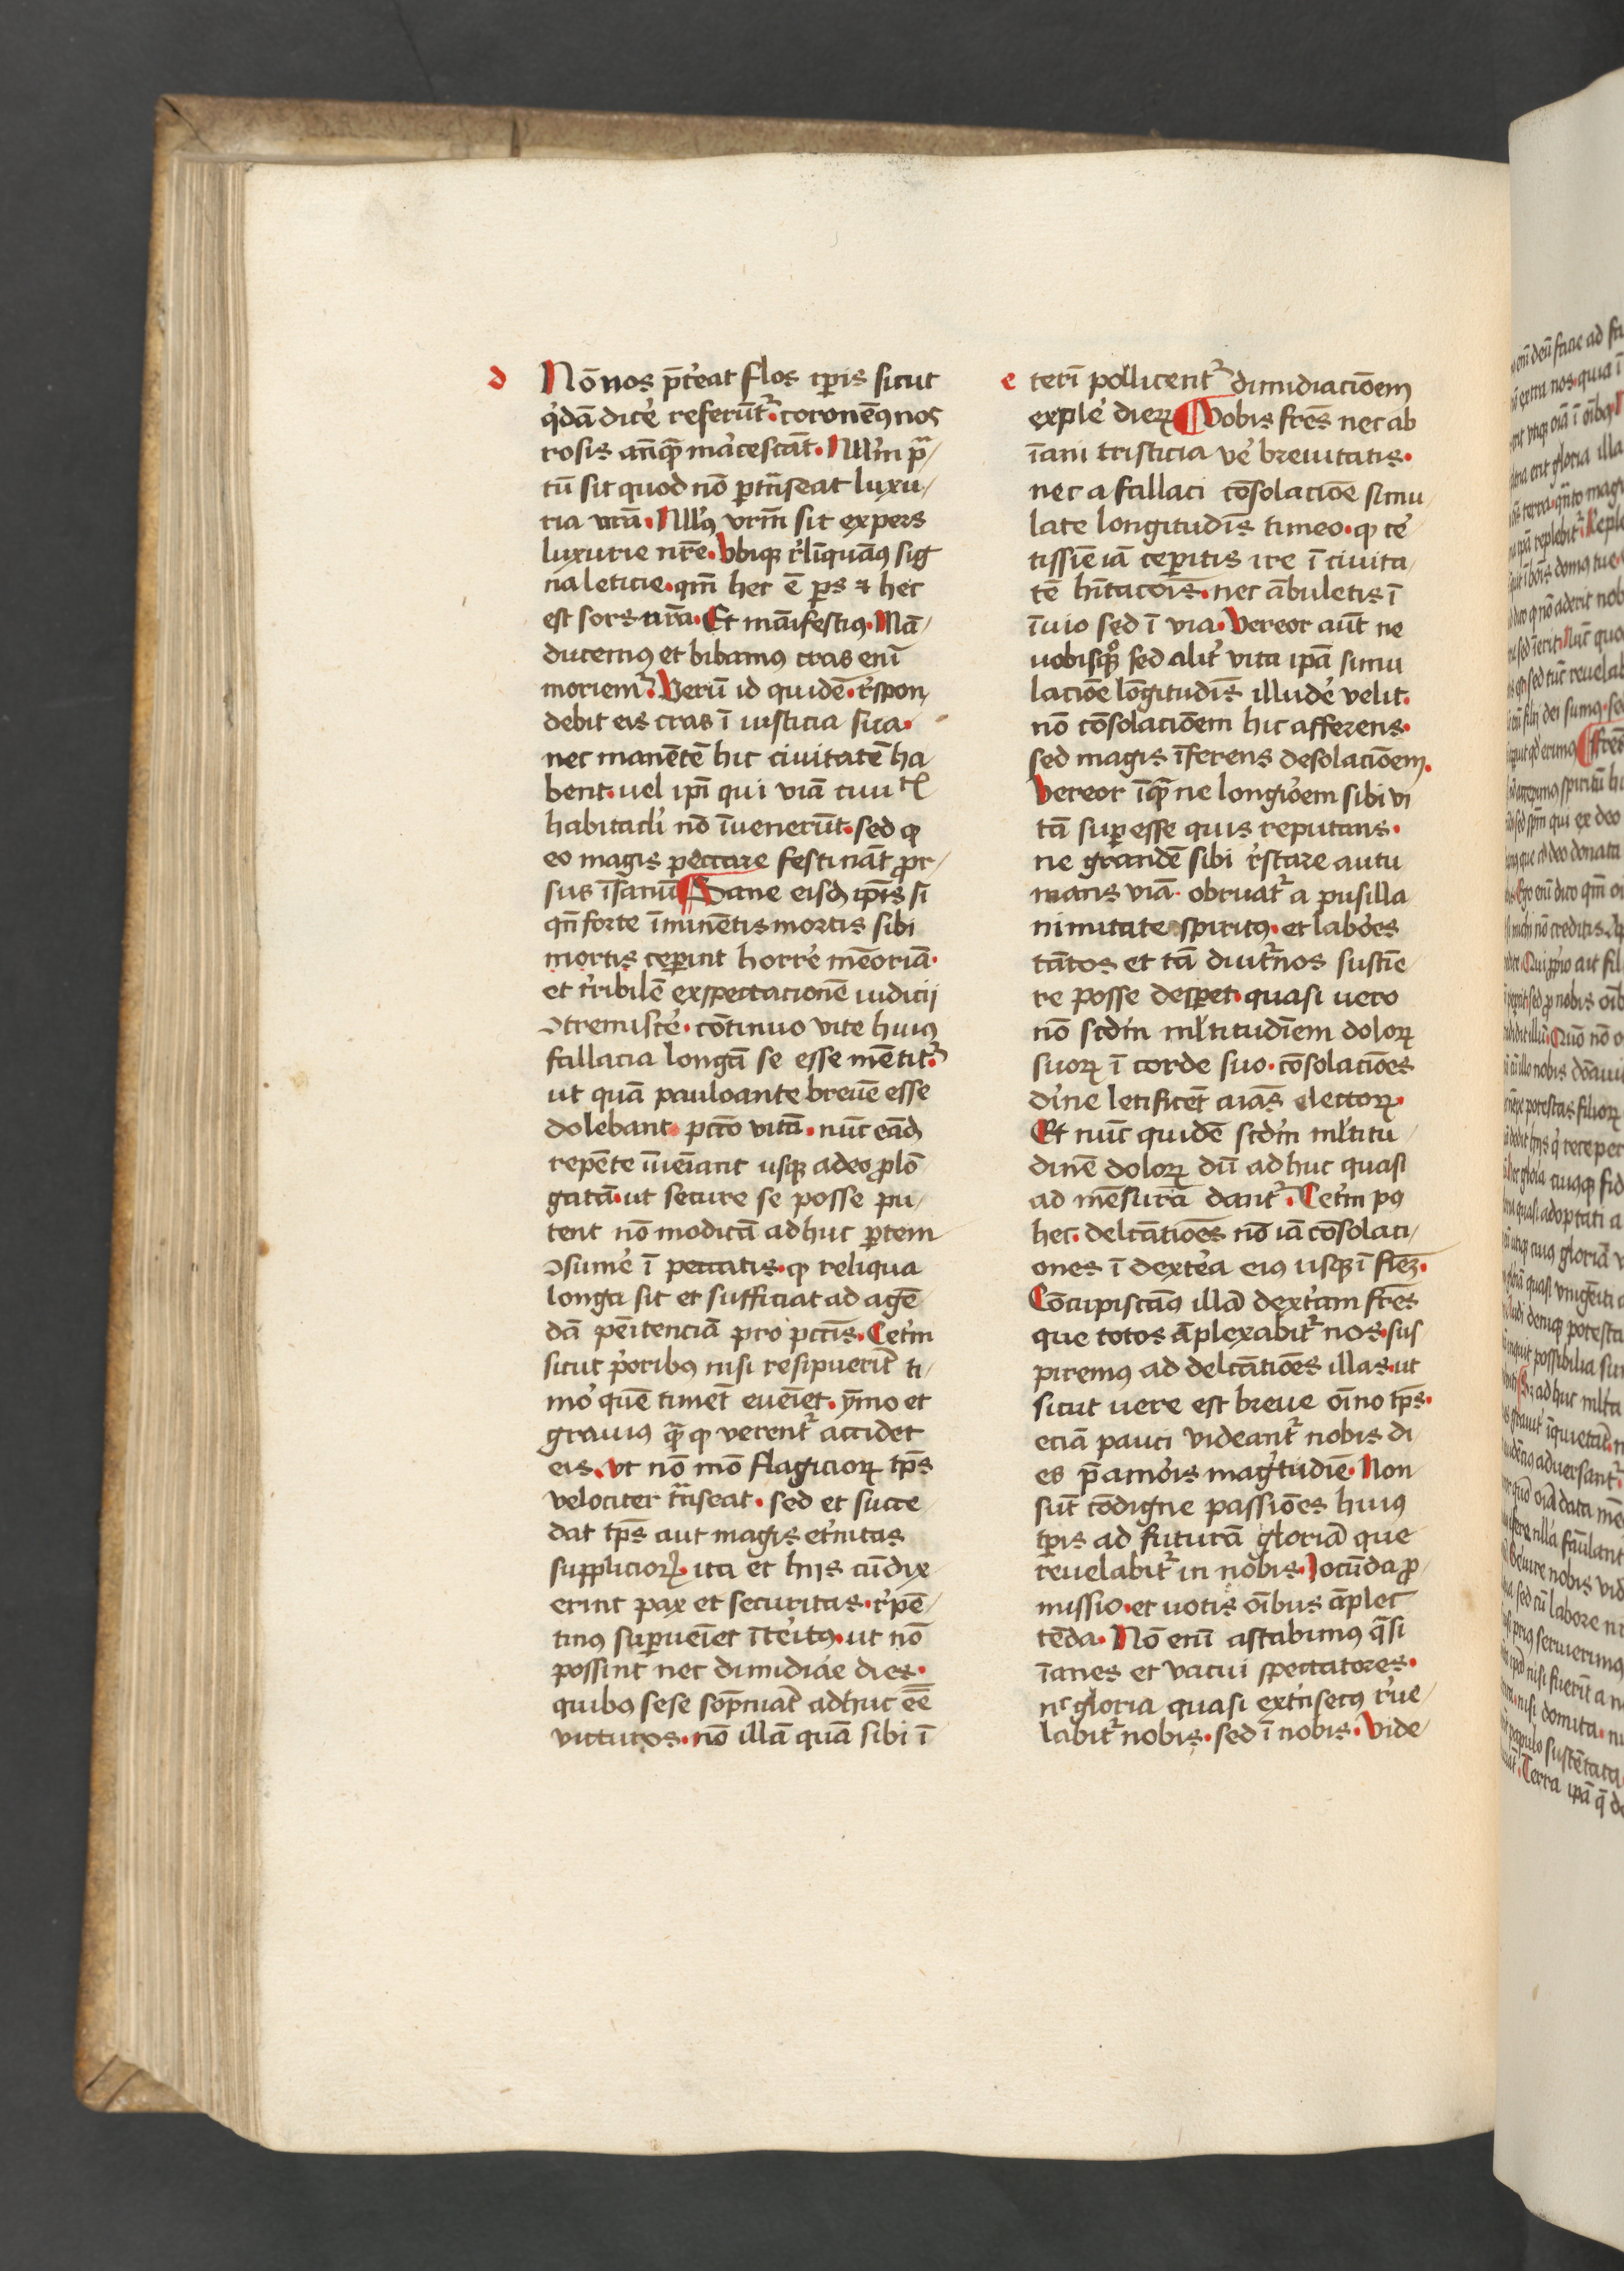 d
Nō nos p̄t'eat flos tp̄is sicut
q'dā dic'e referūt². coronem9 nos
rosis an̄q̄ᵃ marcescāt. Null'm pᵃ/
tū sit quod nō ptͣnseat luxu/
ria nr̄a. Null9 vr̄m sit expers
luxurie nr̄e. Vbiqꝫ r'linquam9 sig
na leticie. qm̄ hec ē ps ⁊ hec
est sors nr̄a. Et māifesti9. Mā/
ducem9 et bibam9 cras enī
moriem². Verū id quidē. r'spon
debit eis cras ī iusticia sua.
nec manētē hic ciuitatē ha
bent. uel ip̄i qui viā ciuit̄
habitac̄li nō īuenerūt. sed ꝙ
eo magis peccare festināt ꝓr/
sus īsaniū ¶ Sane eisd̄ ip̄is si
qn̄ forte īminētis mortis sibi
mortis ceperint horr'e mēoriā.
et t'ribilē exspectacionē iudicij
ↄtremisc'e. cōtinuo vite hui9
fallacia longā se esse mētit².
ut quā pauloante breuē esse
dolebant pctō vitā. nūc eād̄
repēte īueīant usqꝫ adeo ꝓlō
gatā. ut secure se posse pu/
tent nō modicā adhuc ptem
ↄsum'e ī peccatis. ꝙ reliqua
longa sit et sufficiat ad agē
dā pēitenciā pro pctīs. Cet'm
sicut p'orib9 nisi resipuerīt ti/
mor quē timēt eueīet. ȳmo et
graui9 q̄ᵃ ꝙ verent² accidet
eis. vt nō mō flagicioꝝ tp̄s
velociter tͣnseat. sed et succe/
dat tp̄s aut magis et'nitas
supplicioꝝ. ita et hijs cū dix/
erint pax et securitas. r'pē/
tin9 superueīet īt'it9. ut nō
possint nec dimidiare dies.
quib9 sese sōpniāt adhuc ēē
victuros. nō illā quā sibi ī
e
terī pollicent² dimidiaciōem
expl'e dieꝝ ¶ Vobis fr̄es nec ab
īani tristicia v'e breuitatis.
nec a fallaci cōsolaciōe simu/
late longitudīs timeo. ꝙ c'e
tissīe iā cepitis ire ī ciuita/
tē hītacōis. nec ābuletis ī
īuio sed ī via. Vereor aūt ne
uobisqͦꝫ sed alit' vita ip̄a simu
laciōe lōgitudīs illud'e velit.
nō cōsolaciōem hic afferens.
sed magis īferens desolaciōem.
Vereor īq̄ᵃ ne longiōem sibi vi
tā superesse quis reputans.
ne grandē sibi r'stare autu
mans viā. obruat² a pusilla
nimitate spirit9. et labōes
tātos et tā diut²nos sustīe
re posse desperet. quasi uero
nō sc̄dm ml'titudīem doloꝝ
suoꝝ ī corde suo. cōsolaciōes
dīne letificēt aīas electoꝝ.
Et nūc quidē sc̄dm ml'titu/
dinē doloꝝ dū adhuc quasi
ad mēsurā dant². Cet'm p9
hec. delcātiōes nō iā cōsolaci/
ones ī dext'a ei9 usqꝫ ī fīeꝫ.
Cōcupiscam9 illā dext'am fr̄es
que totos āplexabit² nos. sus
pirem9 ad delcātiōes illas. ut
sicut uere est breue oīno tp̄s.
eciā pauci videant² nobis di
es p̄ amōis magr̄tudīe. Non
sūt cōdigne passiōes hui9
tp̄is ad futurā gloriā que
reuelabit² in nobis. Iocūda ꝓ/
missio. et uotis oībus āplec
tēda. Nō enī astabimus q̄si
īanes et vacui spectatores.
nᶜ gloria quasi ext'nsec9 r'ue/
labit² nobis. sed ī nobis. Vide/